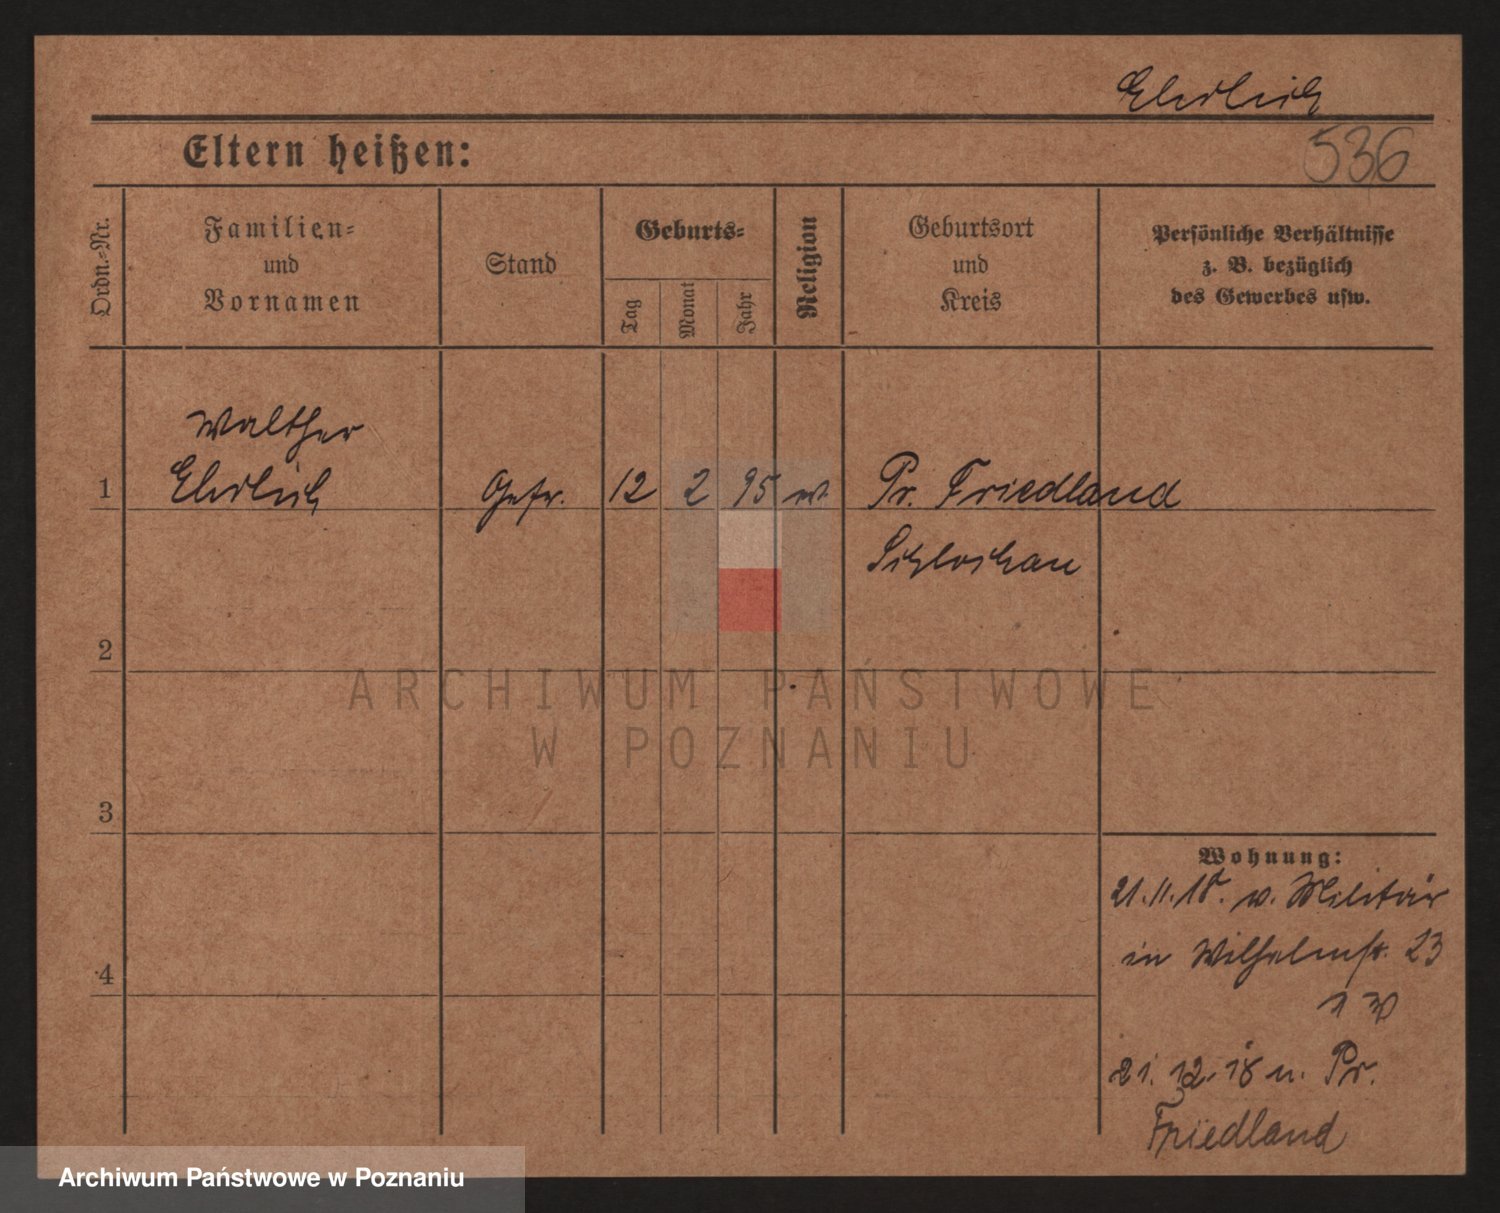 Ehrlich
Eltern heißen:
536
Ordn.-Nr.
Familien-
und
Vornamen
Stand
Geburts-
Tag
Monat
Jahr
Religion
Geburtsort
und
Kreis
Persönliche Verhältnisse
z. B. bezüglich
des Gewerbes usw.
Walther
1 Ehrlich Gefr. 12 2 95 Pr. Friedland
Schlochau
2
ARCHIWUM PAŃSTWOWE
W POZNANIU
3
Wohnung:
21.11.18. v. Militär
4
in Wilhelmstr. 23
21. 12. 18 n. Pr.
Friedland
Archiwum Państwowe w Poznaniu